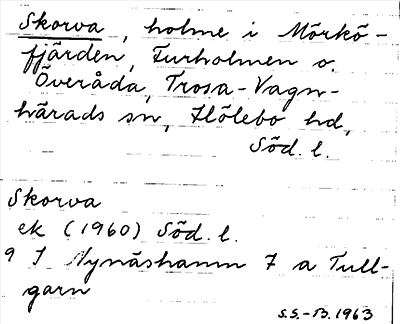 Skorva, holme i Mörkö-
fjärden, Furholmen o.
Överåda, Trosa-Vagn-
härads sn, Hölebo hd,
Söd. l.
Skorva
ek (1960) Söd. l.
9 I Nynäshamn 7 a Tull-
garn
S.S.-B. 1963